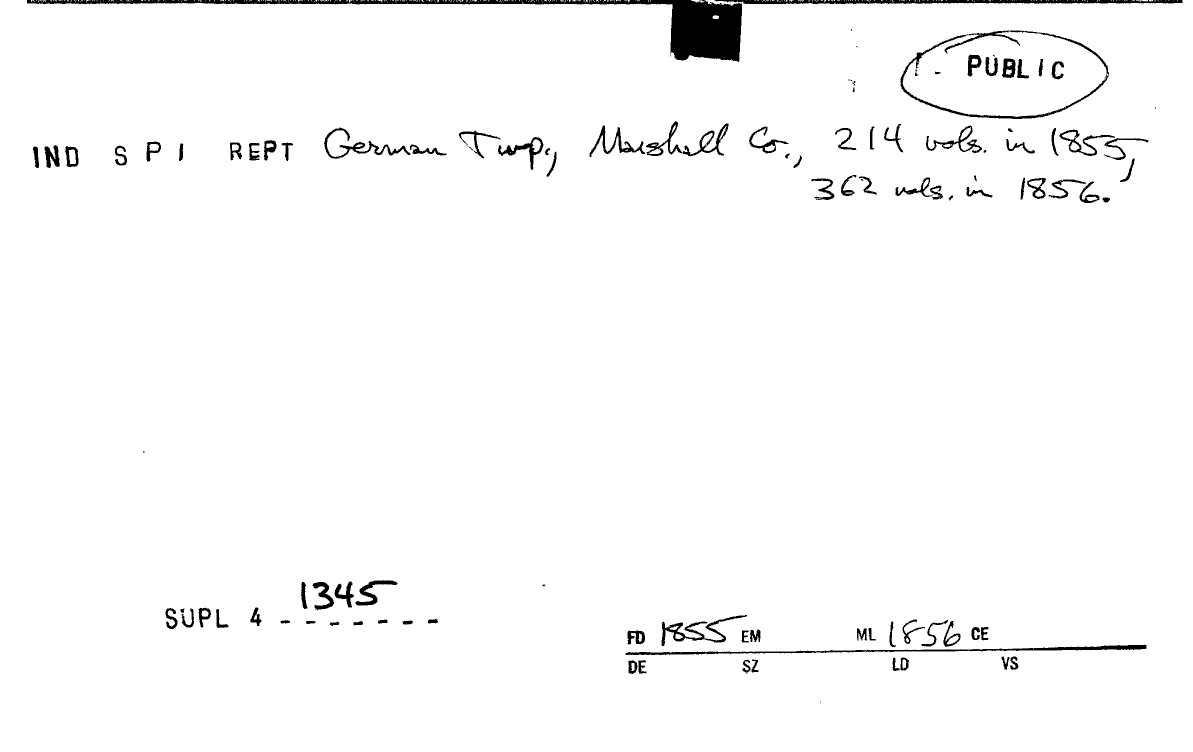 PUBLIC
IND S P I REPT German Twp., Marshall Co., 214 vols. in 1855,
362 vols. in 1856.
SUPL 4 1345
FD 1855 EM ML 1856 CE
DE SZ LD VS